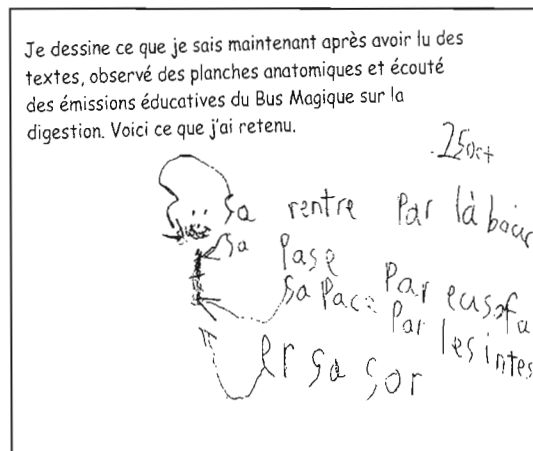 Je dessine ce que je sais maintenant après avoir lu des
textes, observé des planches anatomiques et écouté
des émissions éducatives du Bus Magique sur la
digestion. Voici ce que j'ai retenu.
25oct
sa rentre Par là bouc
sa Pase Par eusofa
sa Pace Par les intes
er sa sor